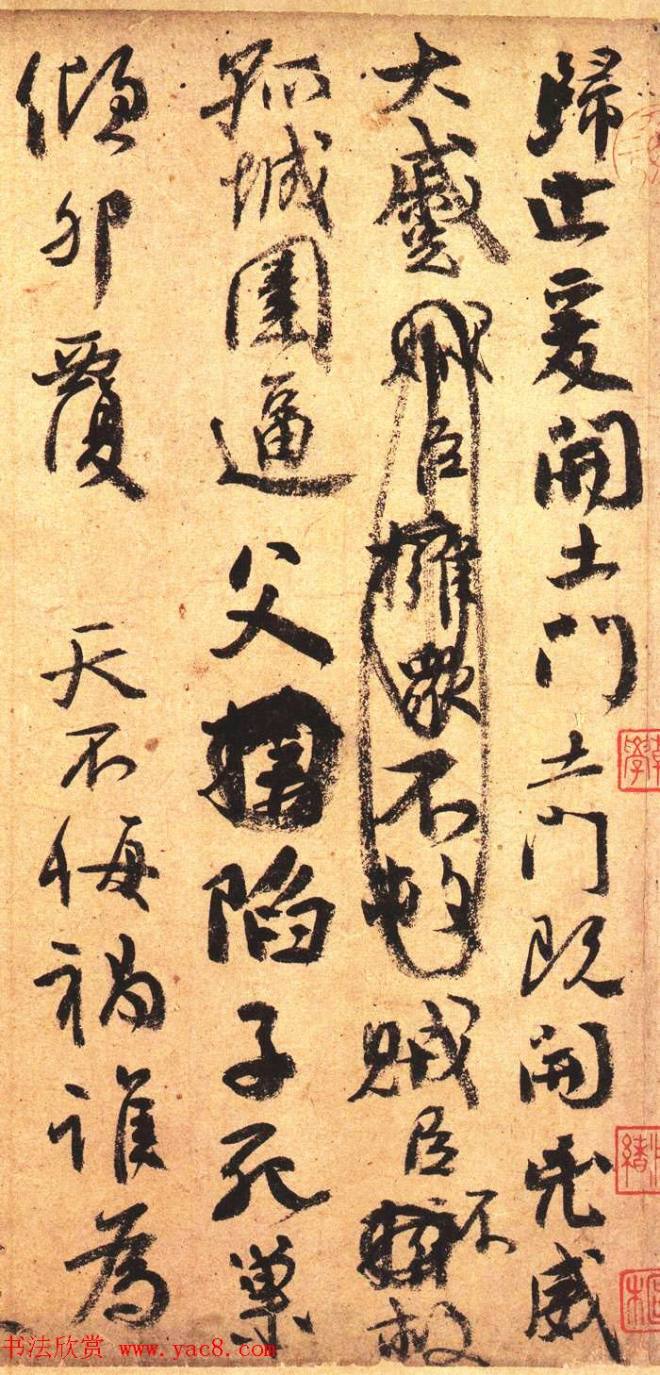 歸止爰開土門土門既開兇威
大蹙賊臣擁眾不救賊臣不救
孤城圍逼父陷子死巢
傾卵覆 天不悔禍誰為
书法欣赏 www.yac8.com